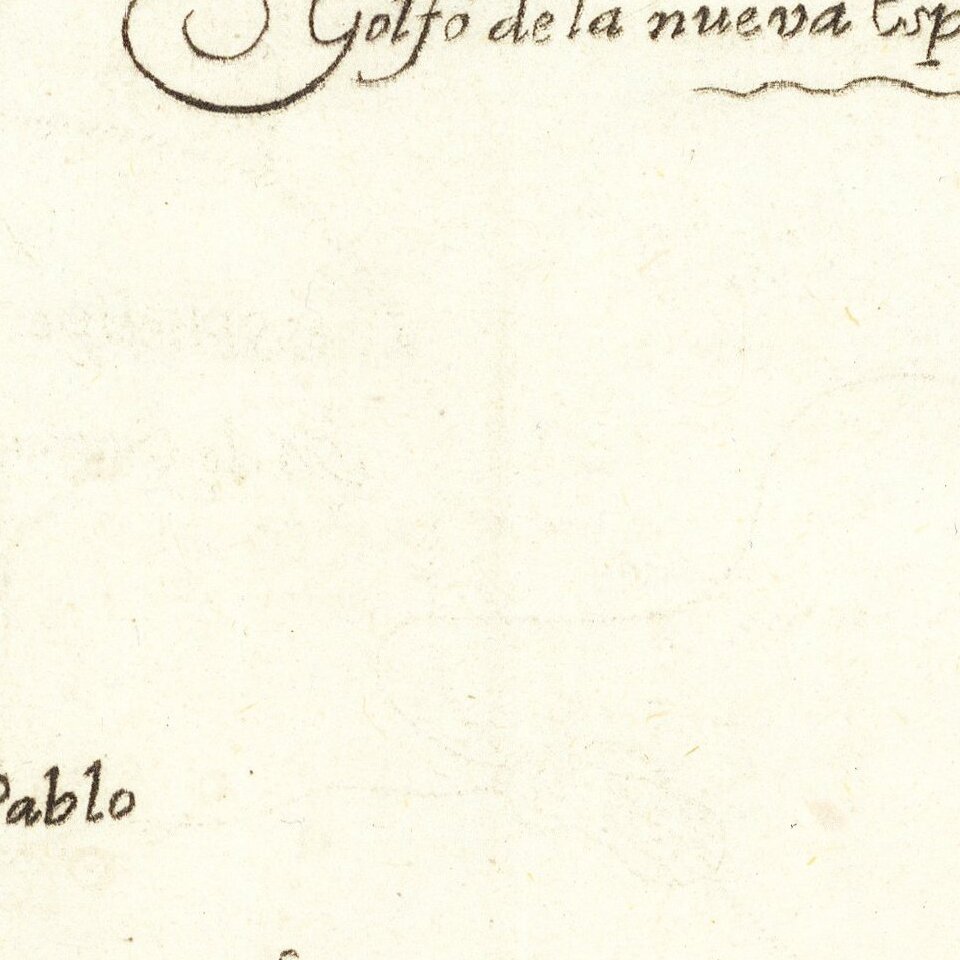 Golfo de la nueva Esp
Pablo